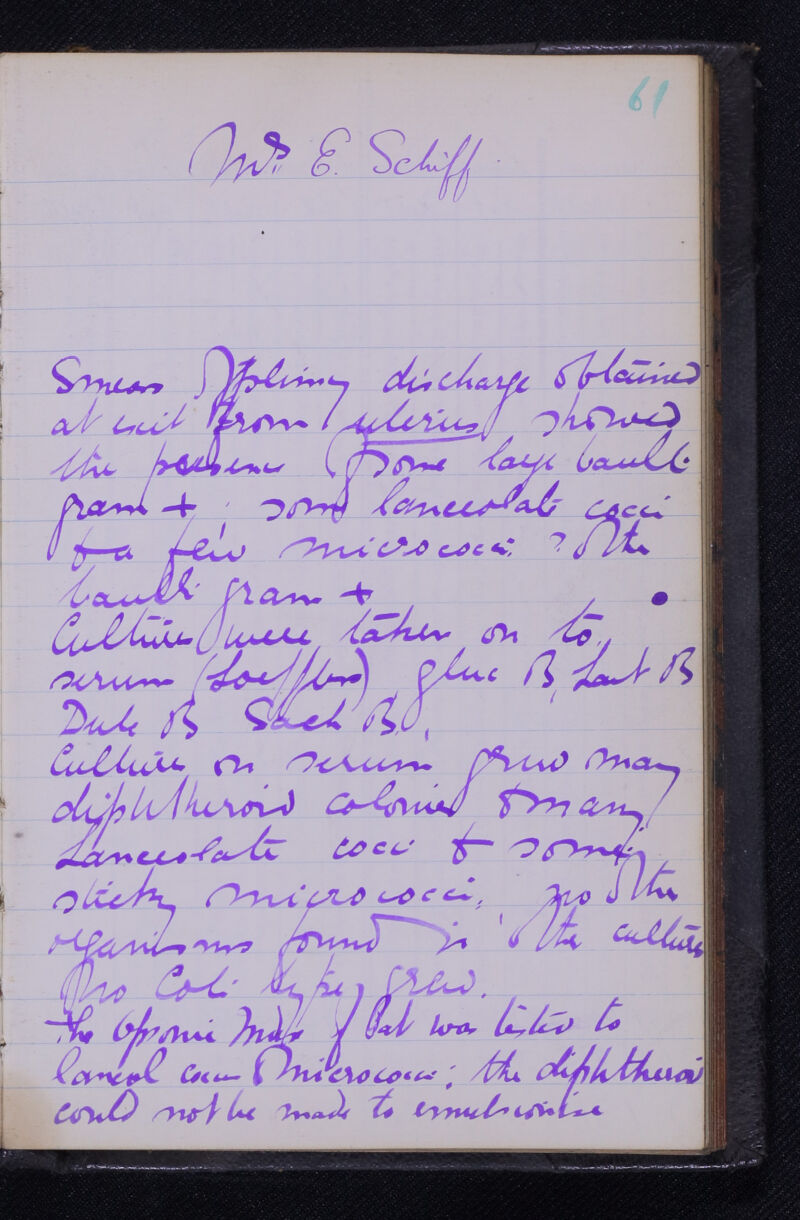 61
Mrs. E. Schiff
Smears of slimy discharge obtained
at exit from uterus showed
the presence of some large bacilli
gram +; some lanceolate cocci
& a few micrococci ? other
bacilli gram +
Cultures were taken on to
serum (Loeffler), Gluc B, Lact B
Dulc B Sach B,
Culture on serum grew many
diphtheroid colonies & many
Lanceolate cocci & some
sticky micrococci, no other
organisms found in other cultures
No Coli type grew.
The Opsonic Index of Pat was tested to
lanceol cocci & micrococci; the diphtheroid
could not be made to emulsionise